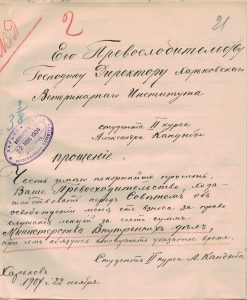 2
21
Его Превосходительству
Господину Директору Харьковского
Ветеринарного Института
студента II курса
Александра Кандыба
прошение.
Честь имею покорнейше просить
Ваше Превосходительство, хода-
тайствовать перед Советом об
освобождении меня от взноса за право
слушания лекций за счет сумм
Министерства Внутренних дел,
при чем обязуюсь выслужить указанное время.
Студент II курса А. Кандыба.
Харьков
1904 22 ноября.